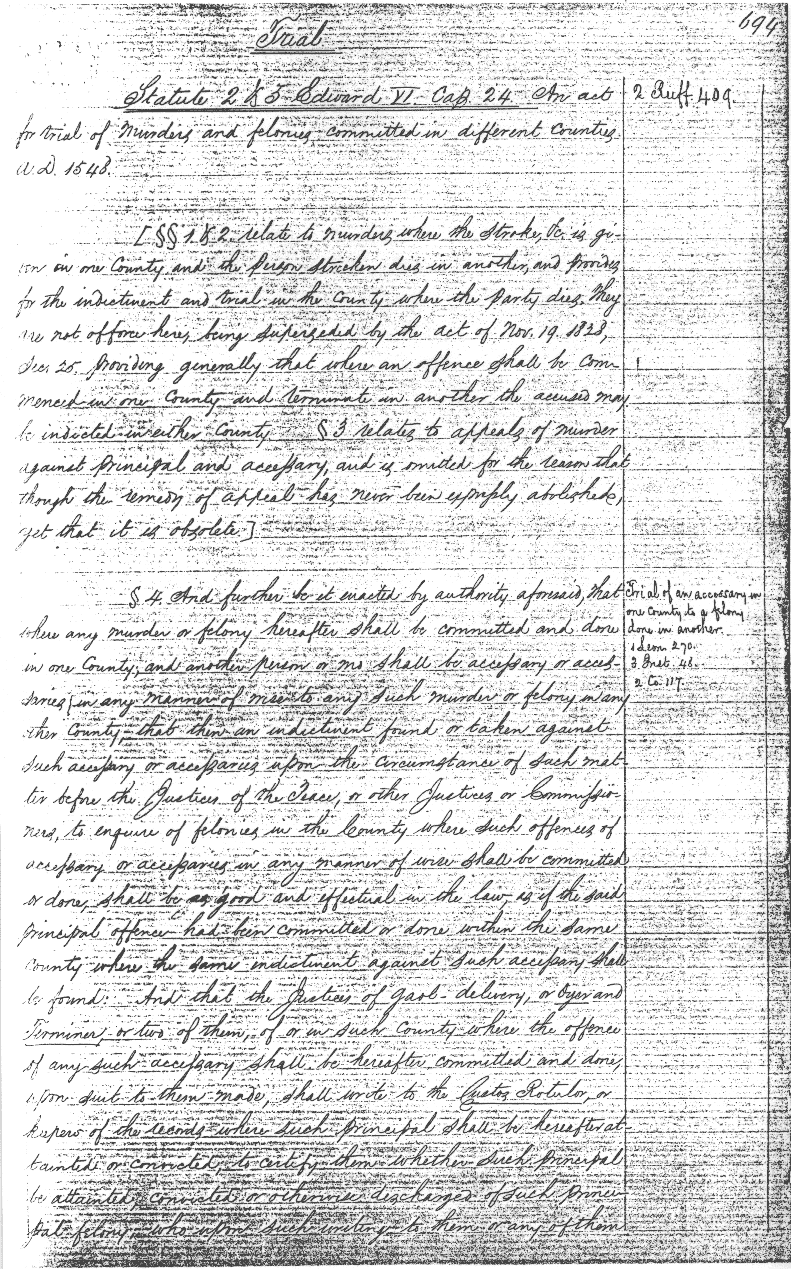 694
Trial
Statute 2 & 3 Edward VI. Cap. 24. An act
2 Ruff. 409.
for trial of Murders and felonies committed in different Counties
A.D. 1548.
[§§ 1 & 2 relate to murders where the stroke, &c. is gi-
ven in one County and the Person stricken dies in another, and provides
for the indictment and trial in the County where the Party dies. They
are not of force here, being superseded by the act of Nov. 19. 1828,
Sec. 25. providing generally that where an offence shall be com-
menced in one County and terminate in another the accused may
be indicted in either County. § 3 relates to appeals of murder
against Principal and accessary, and is omitted for the reason that
though the remedy of appeal has never been expressly abolished,
yet that it is obsolete.]
§ 4. And further be it enacted by authority aforesaid, that
where any murder or felony hereafter shall be committed and done
in one County, and another person or mo shall be accessary or acces-
saries in any manner of wise to any such murder or felony in any
other County, that then an indictment found or taken against
such accessary or accessaries upon the circumstance of such mat-
ter before the Justices of the Peace, or other Justices or Commissio-
ners, to enquire of felonies in the County where such offences of
accessary or accessaries in any manner of wise shall be committed
or done, shall be as good and effectual in the law, as if the said
principal offence had been committed or done within the same
County where the same indictment against such accessary shall
be found: And that the Justices of gaol-delivery, or Oyer and
Terminer, or two of them, of or in such County where the offence
of any such accessary shall be hereafter committed and done,
upon suit to them made, shall write to the Custos Rotulor, or
keepers of the records where such principal shall be hereafter at-
tainted or convicted, to certify them whether such principal
be attainted, convicted or otherwise discharged of such princi-
pal felony, who upon such writing to them or any of them
Trial of an accessary in
one county to a felony
done in another.
1 Leon. 270.
3 Inst. 48.
2 Co. 117.